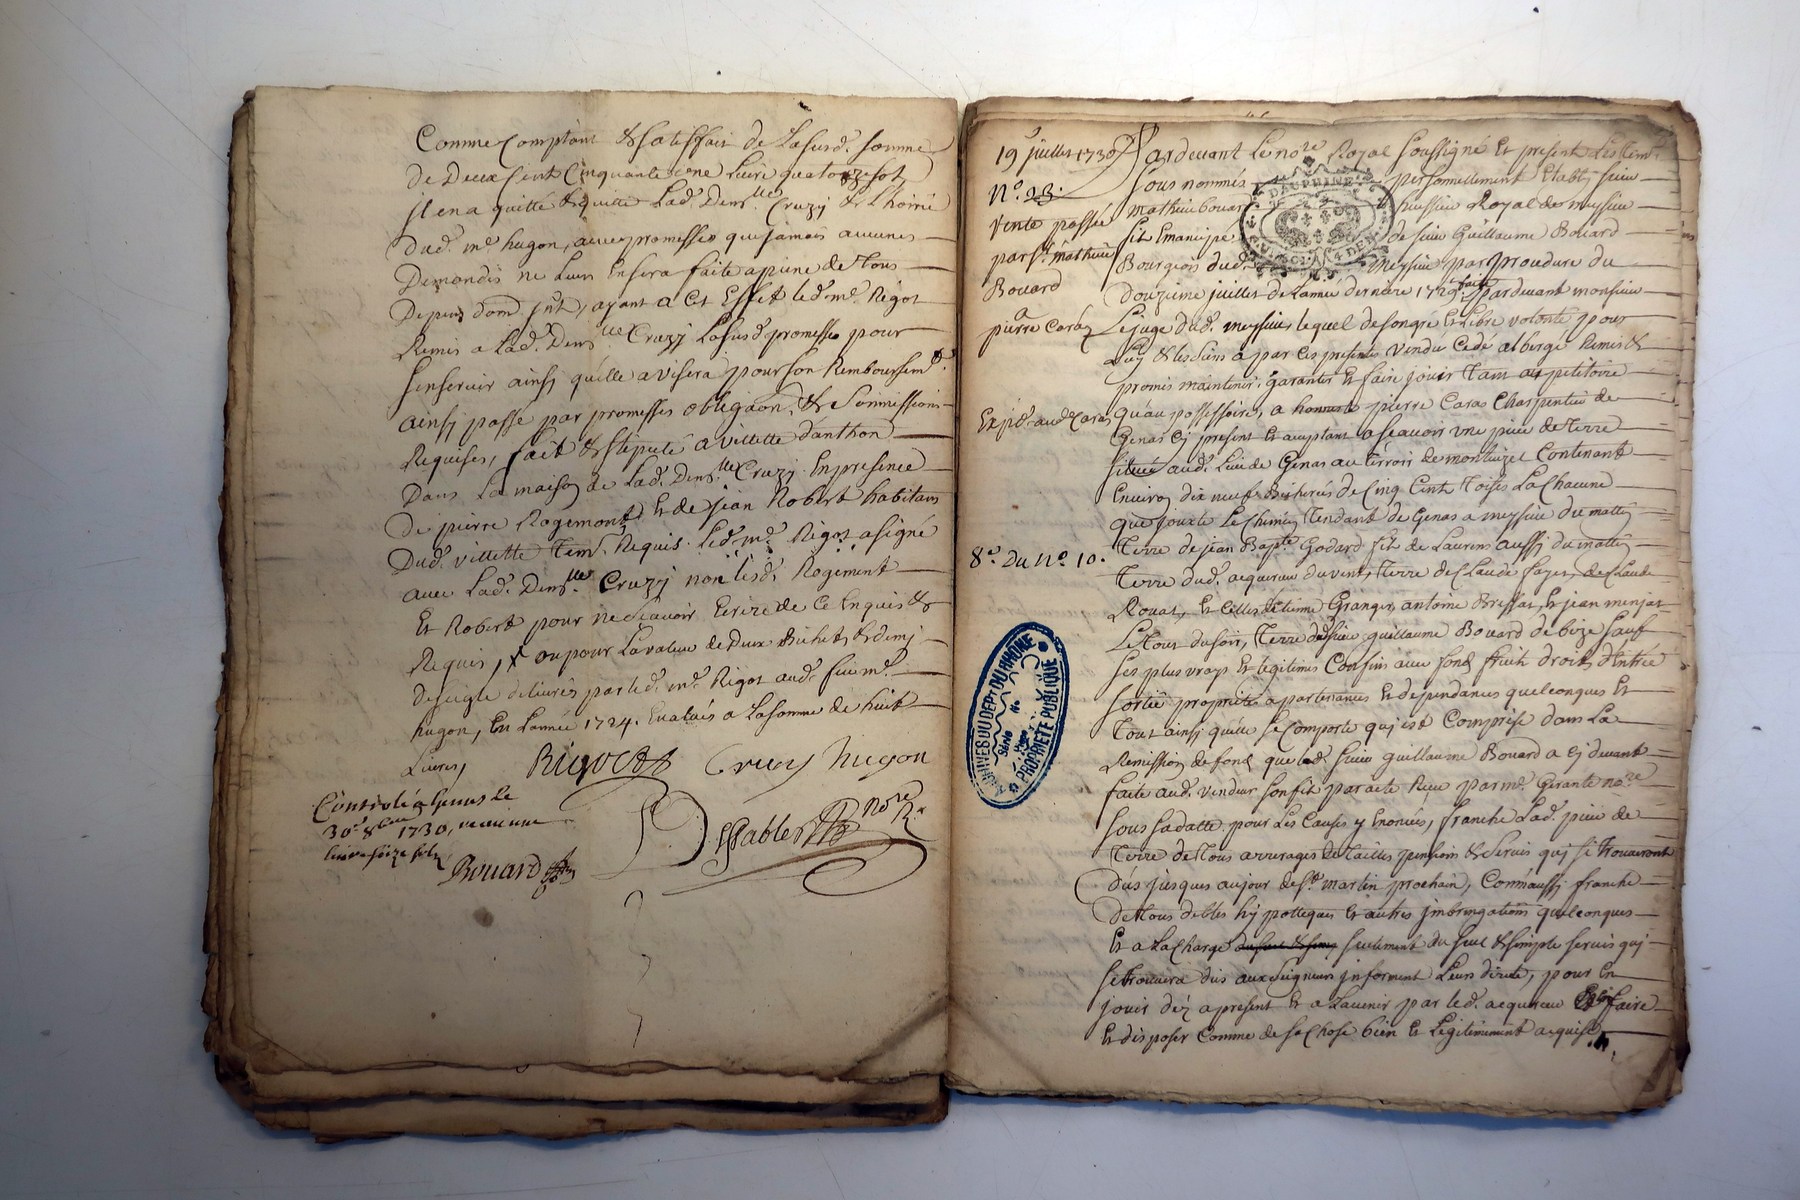 Comme Comptant & satisffait de Lasusd. somme
de Deux Cent Cinquante une Livre quatorze sols
il en a quitté & quitte Lad. Demlle Cruzy & L'hoirie
dud. me hugon, avec promesses que jamais aucunes
Demandes ne leur Ensera faite a peine de Tous
Depens dom. int., ayant a Cet Effet led. me. Rigot
Remis a Lad. Demlle Cruzy Lasusd. promesse pour
sen servir ainsy quelle avisera pour son Remboursemt.
ainsy passé par promesses obligaon. & Sommissions
Requises, fait & stipulé a villette d'anthon
Dans La maison de Lad. Demlle Cruzy. En presence
de pierre Rogemont Et de jean Robert habitans
Dud. villette Tem. Requis. Led. me. Rigot a signé
avec Lad. Demlle. Cruzy non lesd. Rogement
Et Robert pour ne scavoir Ecrire de Ce Enquis &
Requis, ou pour La valeur de Deux Bichets & demy
de seigle delivrés par led. me. Rigot aud. feu me.
hugon, En L'année 1724. Evalués a La somme de huit
Livres,
Rigot Cruzy hugon
Dessablet nore R.
Controlé a Genas le
30e 8bre 1730, receu une
livre seize sols
Bouard
19 juillet 1730
No. 23.
vente passée
par sr. mathieu
Bouard
a
pierre Caraz
Expé. aud. Caraz
8e. Du No. 10.
ARCHIVES DU DEPT DU RHONE
PROPRIETE PUBLIQUE
DAUPHINE
Pardevant Le nore Royal soussigné Et present Les Tem.
sous nommés personnellement Etably sieur
mathieu bouard huissier Royal de meysieu
fils Emancipé de sieur Guillaume Bouard
Bourgeois dud. Meysieu par Proceddure du
douzieme juillet de L'année derniere 1729. faite pardevant monsieur
Le juge dud. meysieu, lequel de son gré Et Libre volonté pour
Luy & les siens a par Ces presentes vendu Cedé alberge Remis &
promis maintenir, garantir Et faire jouir Tant au petitoire
qu'au possessoire, a honneste pierre Caras Charpentier de
Genas Cy present Et acceptant a scavoir une piece de Terre
située aud. Lieu de Genas au Terroir de Contenant
Environ dix neuf Bicherées de Cinq Cent Toises La Chacune
que jouxte Le Chemin Tendant de Genas a meysieu du mattin
Terre de jean Bapte Godard fils de Laurens aussy du mattin
Terre dud. acquereur du vent, Terre de Claude de Claude
Rouat, Et Celles d'Etienne Granger, antoine Bressat, Et jean menjat
Le Tout du soir, Terre dud. sieur guillaume Bouard de bize sauf
ses plus vrays Et Legitimes Confins avec fond fruits droits d'Entrée
sortie proprieté apartenances Et dependances quelconques Et
Tout ainsy quelle se Comporte qui est Comprise dans La
Remission de fond que led. sieur guillaume Bouard a Cy devant
faite aud. vendeur son fils par acte Receu par me. Girante nore
sous sa datte, pour Les Causes y Enoncées, franche Lad. piece de
Terre de Tous arrerages de Tailles pensions & servis qui se Trouveront
dus jusques au jour de st. martin prochain, Comm'aussy franche
de Tous debtes hypotteques Et autres jmbringations quelconques
Et a La Charge seulement du seul & simple servis qui
se trouvera dus aux seigneurs Leurs directe, pour En
jouir dez a present Et a L'avenir par led. acquereur faire
Et disposer Comme de sa Chose bien Et Legitimement acquise.